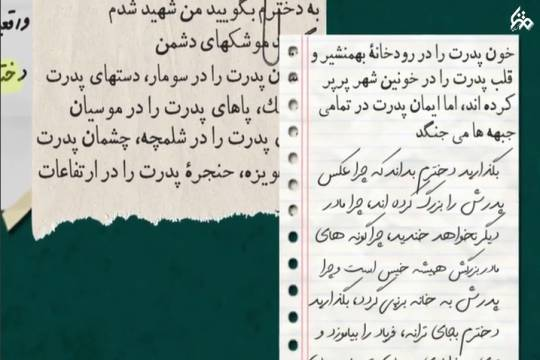 به دخترم بگویید من شهید شدم
موشکهای دشمن
پدرت را در سومار، دستهای پدرت
پاهای پدرت را در موسیان
پدرت را در شلمچه، چشمان پدرت
حنجرهٔ پدرت را در ارتفاعات
خون پدرت را در رودخانهٔ بهمنشیر و
قلب پدرت را در خونین شهر پرپر
کرده‌اند، اما ایمان پدرت در تمامی
جبهه ها می جنگد
بگذارید دخترم بداند که چرا عکس
پدرش را بزرگ کرده اند، چرا مادر
دیگر نخواهد خندید، چرا گونه های
مادربزرگش همیشه خیس است و چرا
پدرش به خانه برنمی گردد، بگذارید
دخترم بجای ترانه، فریاد را بیاموزد و